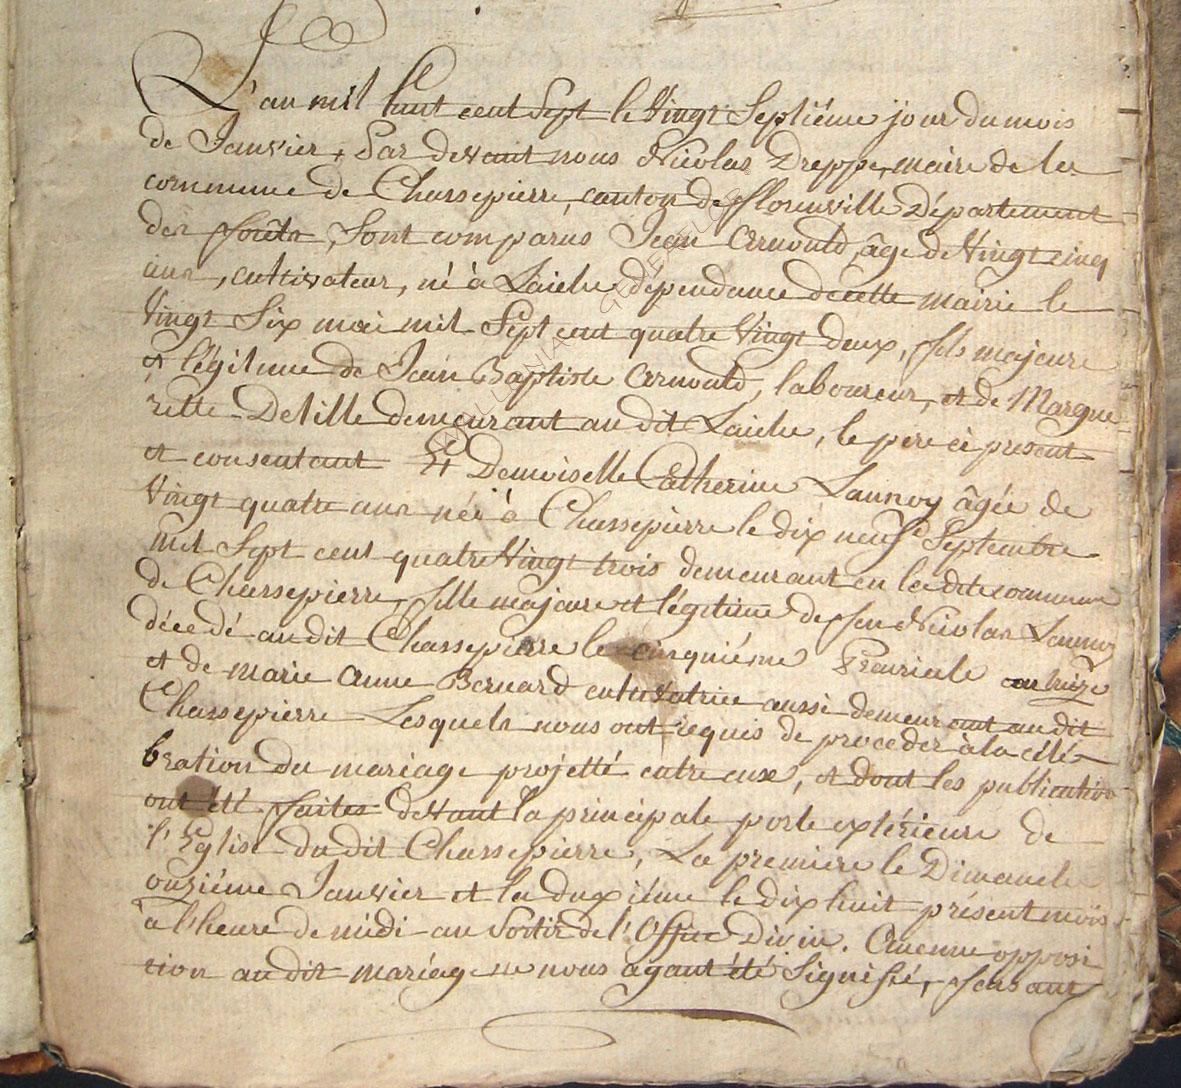 L'an mil huit cent sept le vingt septiéme jour du mois
de Janvier, Par devant nous Nicolas Dreppe, maire de la
commune de Chassepierre, canton de fflorenville Département
des fforêts, sont comparus Jean Arnould, âge de vingt cinq
ans, cultivateur, né à Laiche dépendance de cette mairie le
vingt six mai mil sept cent quatre vingt deux, fils majeure
et légitime de Jean Baptiste Arnould, laboureur, et de Margue
ritte Delille demeurant au dit Laiche, le pere ci présent
et consentant Et Demoiselle Catherine Launoy âgée de
vingt quatre ans née à Chassepierre le dix neuf Septembre
mil sept cent quatre vingt trois demeurant en la dite commune
de Chassepierre, fille majeure et légitime de feu Nicolas Launoy
décedé au dit Chassepierre le cinquiéme Prairiale an
et de marie anne Bernard cultivatrice aussi demeurant au dit
Chassepierre Lesquels nous ont requis de proceder à la célé
bration du mariage projetté entre eux, et dont les publications
ont été faites devant la principale porte extérieure de
l'Eglise du dit Chassepierre, La premiere le Dimanche
onziéme Janvier et la duxiéme le dix huit présent mois
à l'heure de midi au sortir de l'Office Divin. Aucune opposi
tion au dit mariage ne nous ayant été signifié, faisant